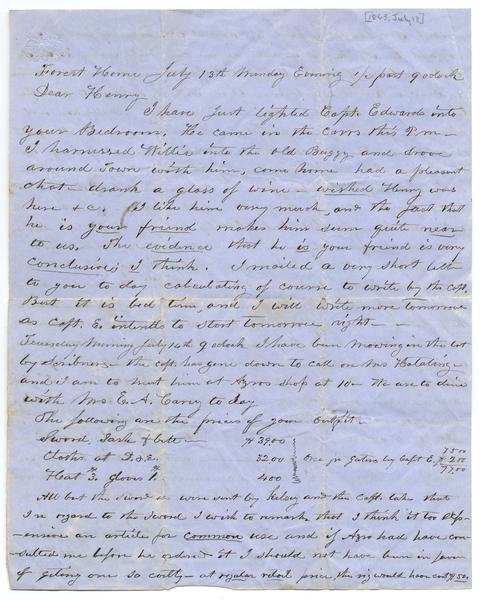 [1863, July 13]
Forest Home July 13th Monday Evening 1/2 past 9 oclock
Dear Henry
I have just lighted Capt. Edwards into
your Bedroom. He came in the carrs this P.m-
I harnessed Willie into the old Buggy and drove
around Town with him, come home had a pleasant
chat - drank a glass of wine - wished Henry was
here &c. I like him very much, and the fact that
he is your friend makes him seem quite near
to us. The evidence that he is your friend is very
conclusive; I think. I mailed a very short letter
to you to day calculating of course to write by the Capt.
But it is bed time, and I will write more tomorrow
as Capt. E. intends to start tomorrow night - -
Tuesday Morning July 14th 9 oclock I have been mowing in the lot
by - the Capt. has gone down to call on Mrs
and I am to meet him at Azros shop at 10 - We are to dine
with Mrs. E. A. Carey to day
The following are the prices of your Outfit -
Sword, Sash & Belt - $39.00
Cloths at D.&E. 32.00 One pr Gaters by Capt E. $2.00
Hat $3. Gloves $1. 4.00
75.00
77.00
All but the Sword &c were sent by and the Capt.
In regard to the Sword I wish to remark, that I think it too exp-
ensive an article for common use and if Azro had have con-
sulted me before he ordered it I should not have been in favor
of geting one so costly - at regular retail price, the rig would have cost $50.